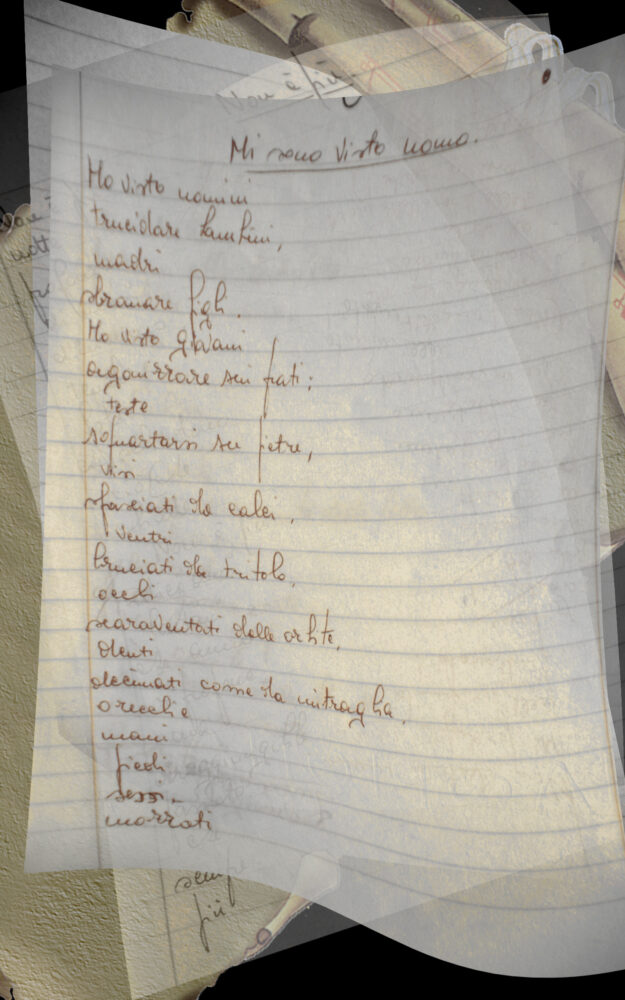 Non è più
Mi sono visto uomo.
Ho visto uomini
trucidare bambini,
madri
sbranare figli.
Ho visto giovani
agonizzare sui prati:
teste
squartarsi su pietre,
visi
sfasciati da calci,
ventri
bruciati da tritolo,
occhi
scaraventati dalle orbite,
denti
decimati come da mitraglia,
orecchie
mani
piedi
sessi
mozzati
sempre
più